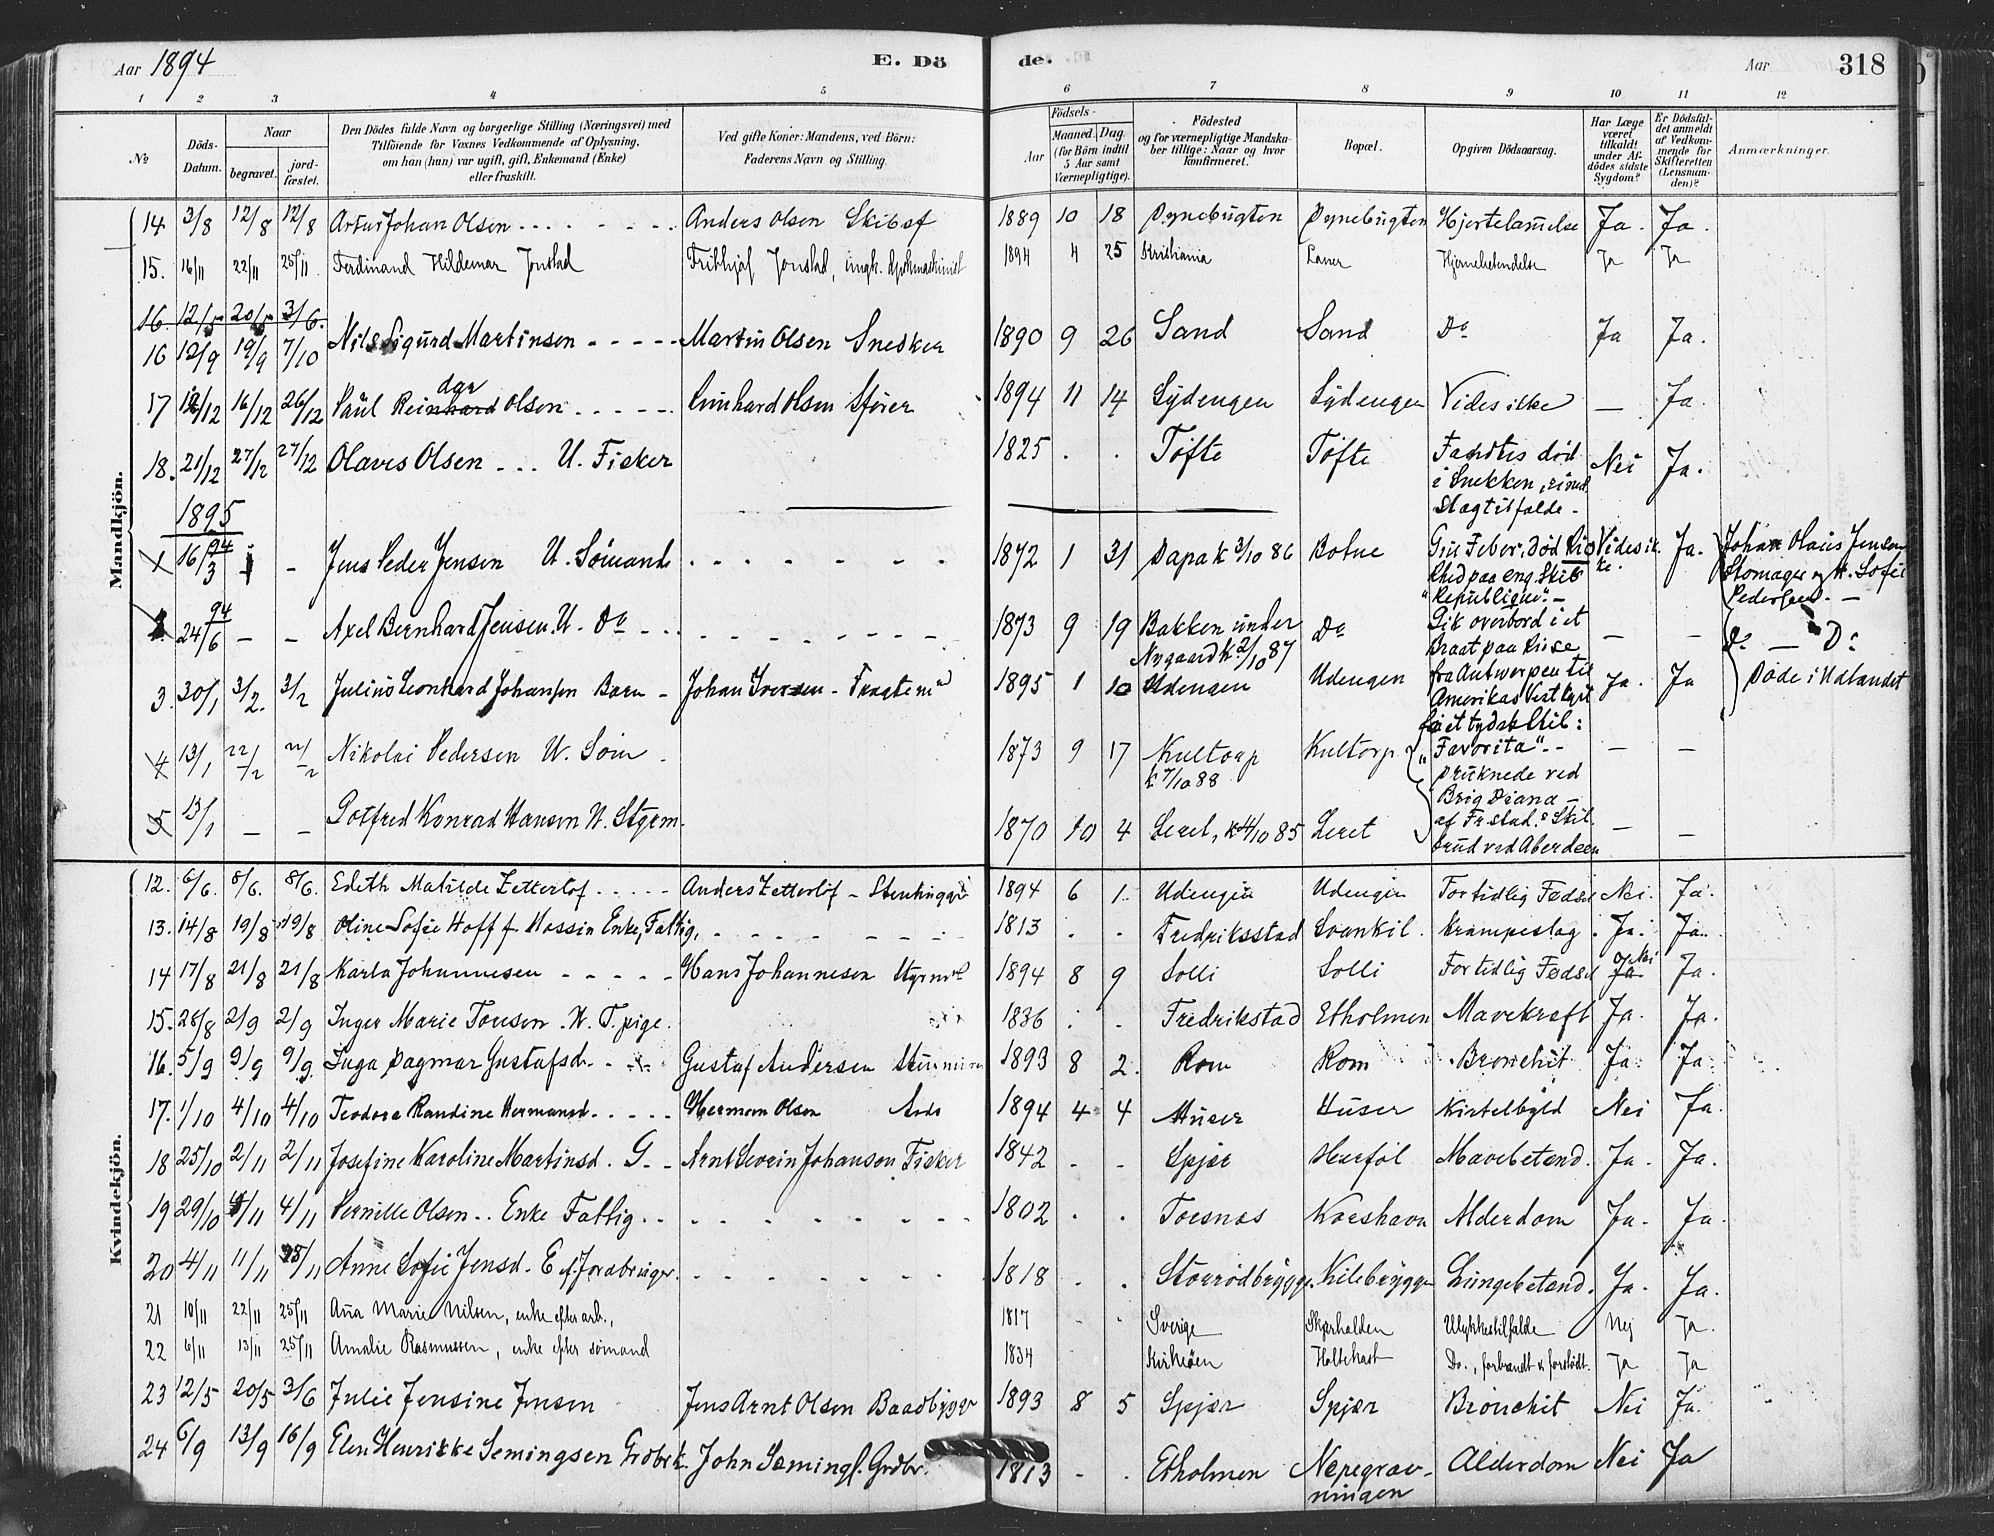 Aar 1894
E. Dö
de.
Aar
318
1 2 3 4 5 6 7 8 9 10 11 12
No
Döds-Datum.
Naar
begravet.
jord-fæstet.
Den Dödes fulde Navn og borgerlige Stilling (Næringsvei) med
Tilföiende for Voxnes Vedkommende af Oplysning,
om han (hun) var ugift, gift, Enkemand (Enke)
eller fraskilt.
Ved gifte Koner: Mandens, ved Börn:
Faderens Navn og Stilling.
Födsels-
Aar
Maaned.
Dag.
(for Börn indtil
5 Aar samt
Værnepligtige).
Födested
og for værnepligtige Mandska-
ber tillige: Naar og hvor
konfirmeret.
Bopæl.
Opgiven Dödsaarsag.
Har Læge
været
tilkaldt
under Af-
dödes sidste
Sygdom?
Er Dödsfal-
det anmeldt
af Vedkom-
mende for
Skifteretten
(Lensman-
den)?
Anmærkninger.
Mandkjön.
14. 3/8 12/8 12/8 Artur Johan Olsen Anders Olsen Skibsf 1889 10 18 Dynebugten Dynebugten Hjertelammelse Ja. Ja.
15. 16/11 22/11 25/11 Ferdinand Hildemar Jonstad Frithjof Jonstad, 1894 4 25 Kristiania Lauer Hjernebetendelse Ja Ja
16. 12/5 20/5 3/6.
16 12/9 19/9 7/10 Nils Sigurd Martinsen Martin Olsen Snedker 1890 9 26 Sand Sand Do Ja Ja.
17 12/12 16/12 26/12 Paul Reinhard dar Olsen Olsen 1894 11 14 Sydengen Sydengen Vides ikke — Ja.
18. 21/12 27/12 27/12 Olaves Olsen U. Fisker 1825 . . Tofte Tofte Fandtes död Nei Ja.
i Snekken, rimel.
Slagtilfalde.
1895
1 16/3 94 - - Jens Peder Jensen U. Sömand 1872 1 31 Papa k 3/10 86 Botne Gul Feber, Död Rio Vides ik- Ja. Johan Olaus Jensen
ke.
Rhed paa eng. Skib Skomager og H. Sofie
"Republique". — Pedersen. —
2. 24/6 94 — — Axel Bernhard Jensen. U. Do 1873 9 19 Bakken under Do Gik overbord i et — — Do — Do
Nygaard k 2/10 87 Braat paa Reise
3. 30/1 3/2. 3/2 Julius Leonhard Johansen Barn Johan Iversen - Fragtemd 1895 1 10 Udengen Udengen fra Antwerpen til Ja. Ja Döde i Udlandet
Amerikas Vestkyst
i et tydsk Skib:
4 13/1 22/2 22/2 Nikolai Pedersen U. Söm 1873 9 17 Kultorp Kultorp "Favorita" — —
k 7/10 88 Druknede ved
Brig Diana
5 13/1 — — Gotfred Konrad Hansen U. Styrm. 1870 10 4 Leret, k 4/10 85 Leret af Frstad.s Skib. — —
brud ved Aberdeen
Kvindekjön.
12. 6/6. 8/6. 8/6. Edith Matilde Zetterlöf Anders Zetterlöf - Stenhugger 1894 6 1. Udengen Udengen For tidlig Födsel Nei. Ja.
13. 14/8 19/8 19/8 Oline Sofie Hoff f. Mossin Enke, Fattig, 1813 . . Fredriksstad Svankil. Krampeslag Ja. Ja.
14 17/8 21/8 21/8 Karla Johannesen Hans Johannesen Styrmd 1894 8 9 Solli Solli For tidlig Födsel Ja Nei Ja.
15. 28/8 2/9 2/9 Inger Marie Toresen. U. T. pige. 1836 . . Fredrikstad Etholmen Mavekreft Ja. Ja.
16. 5/9 9/9 9/9 Inga Dagmar Gustafsd. Gustaf Andersen 1893 8 2. Rom Rom Bronchit Ja. Ja.
17. 1/10 4/10 4/10 Teodora Randine Hermansd. Herman Olsen Arb 1894 4 4 Huser Huser Kirtelbyld Nei Ja.
18 25/10 2/11 2/11 Josefine Karoline Martinsd. G. Arnt Severin Johanson Fisker 1842 - - Spjær Herföl Mavebetænd. Ja. Ja.
19 29/10 4/11 4/11 Pernille Olsen.. Enke Fattig 1802 . . Torsnes Korshavn Alderdom Ja. Ja.
20 4/11 11/11 /11 Anne Sofie Jensd. E ef. Jordbruger. 1818 . . Storrödbrygge. Kilebrygge Lungebetænd. Ja. Ja.
21 10/11 22/11 25/11 Ana Marie Nilsen, enke efter arb., 1817 - - Sverige Skjærhalden Ulykkestilfælde Nej Ja.
22 6/11 13/11 25/11 Amalie Rasmussen, enke efter sömand 1834 Kirkeöen Holtekast Do., forbrandt & forstödt. Ja Ja
23 12/5 20/5 3/6 Julie Jensine Jensen Jens Arnt Olsen Baadbygger 1893 8 5 Spjær Spjær Bronchit Nei Ja.
24 6/9 13/9 16/9 Elen Henrikke Semingsen Grdbr.k. John Semings. Grdbr. 1813 - . Etholmen Nepegrav- Alderdom Nei Ja
ningen